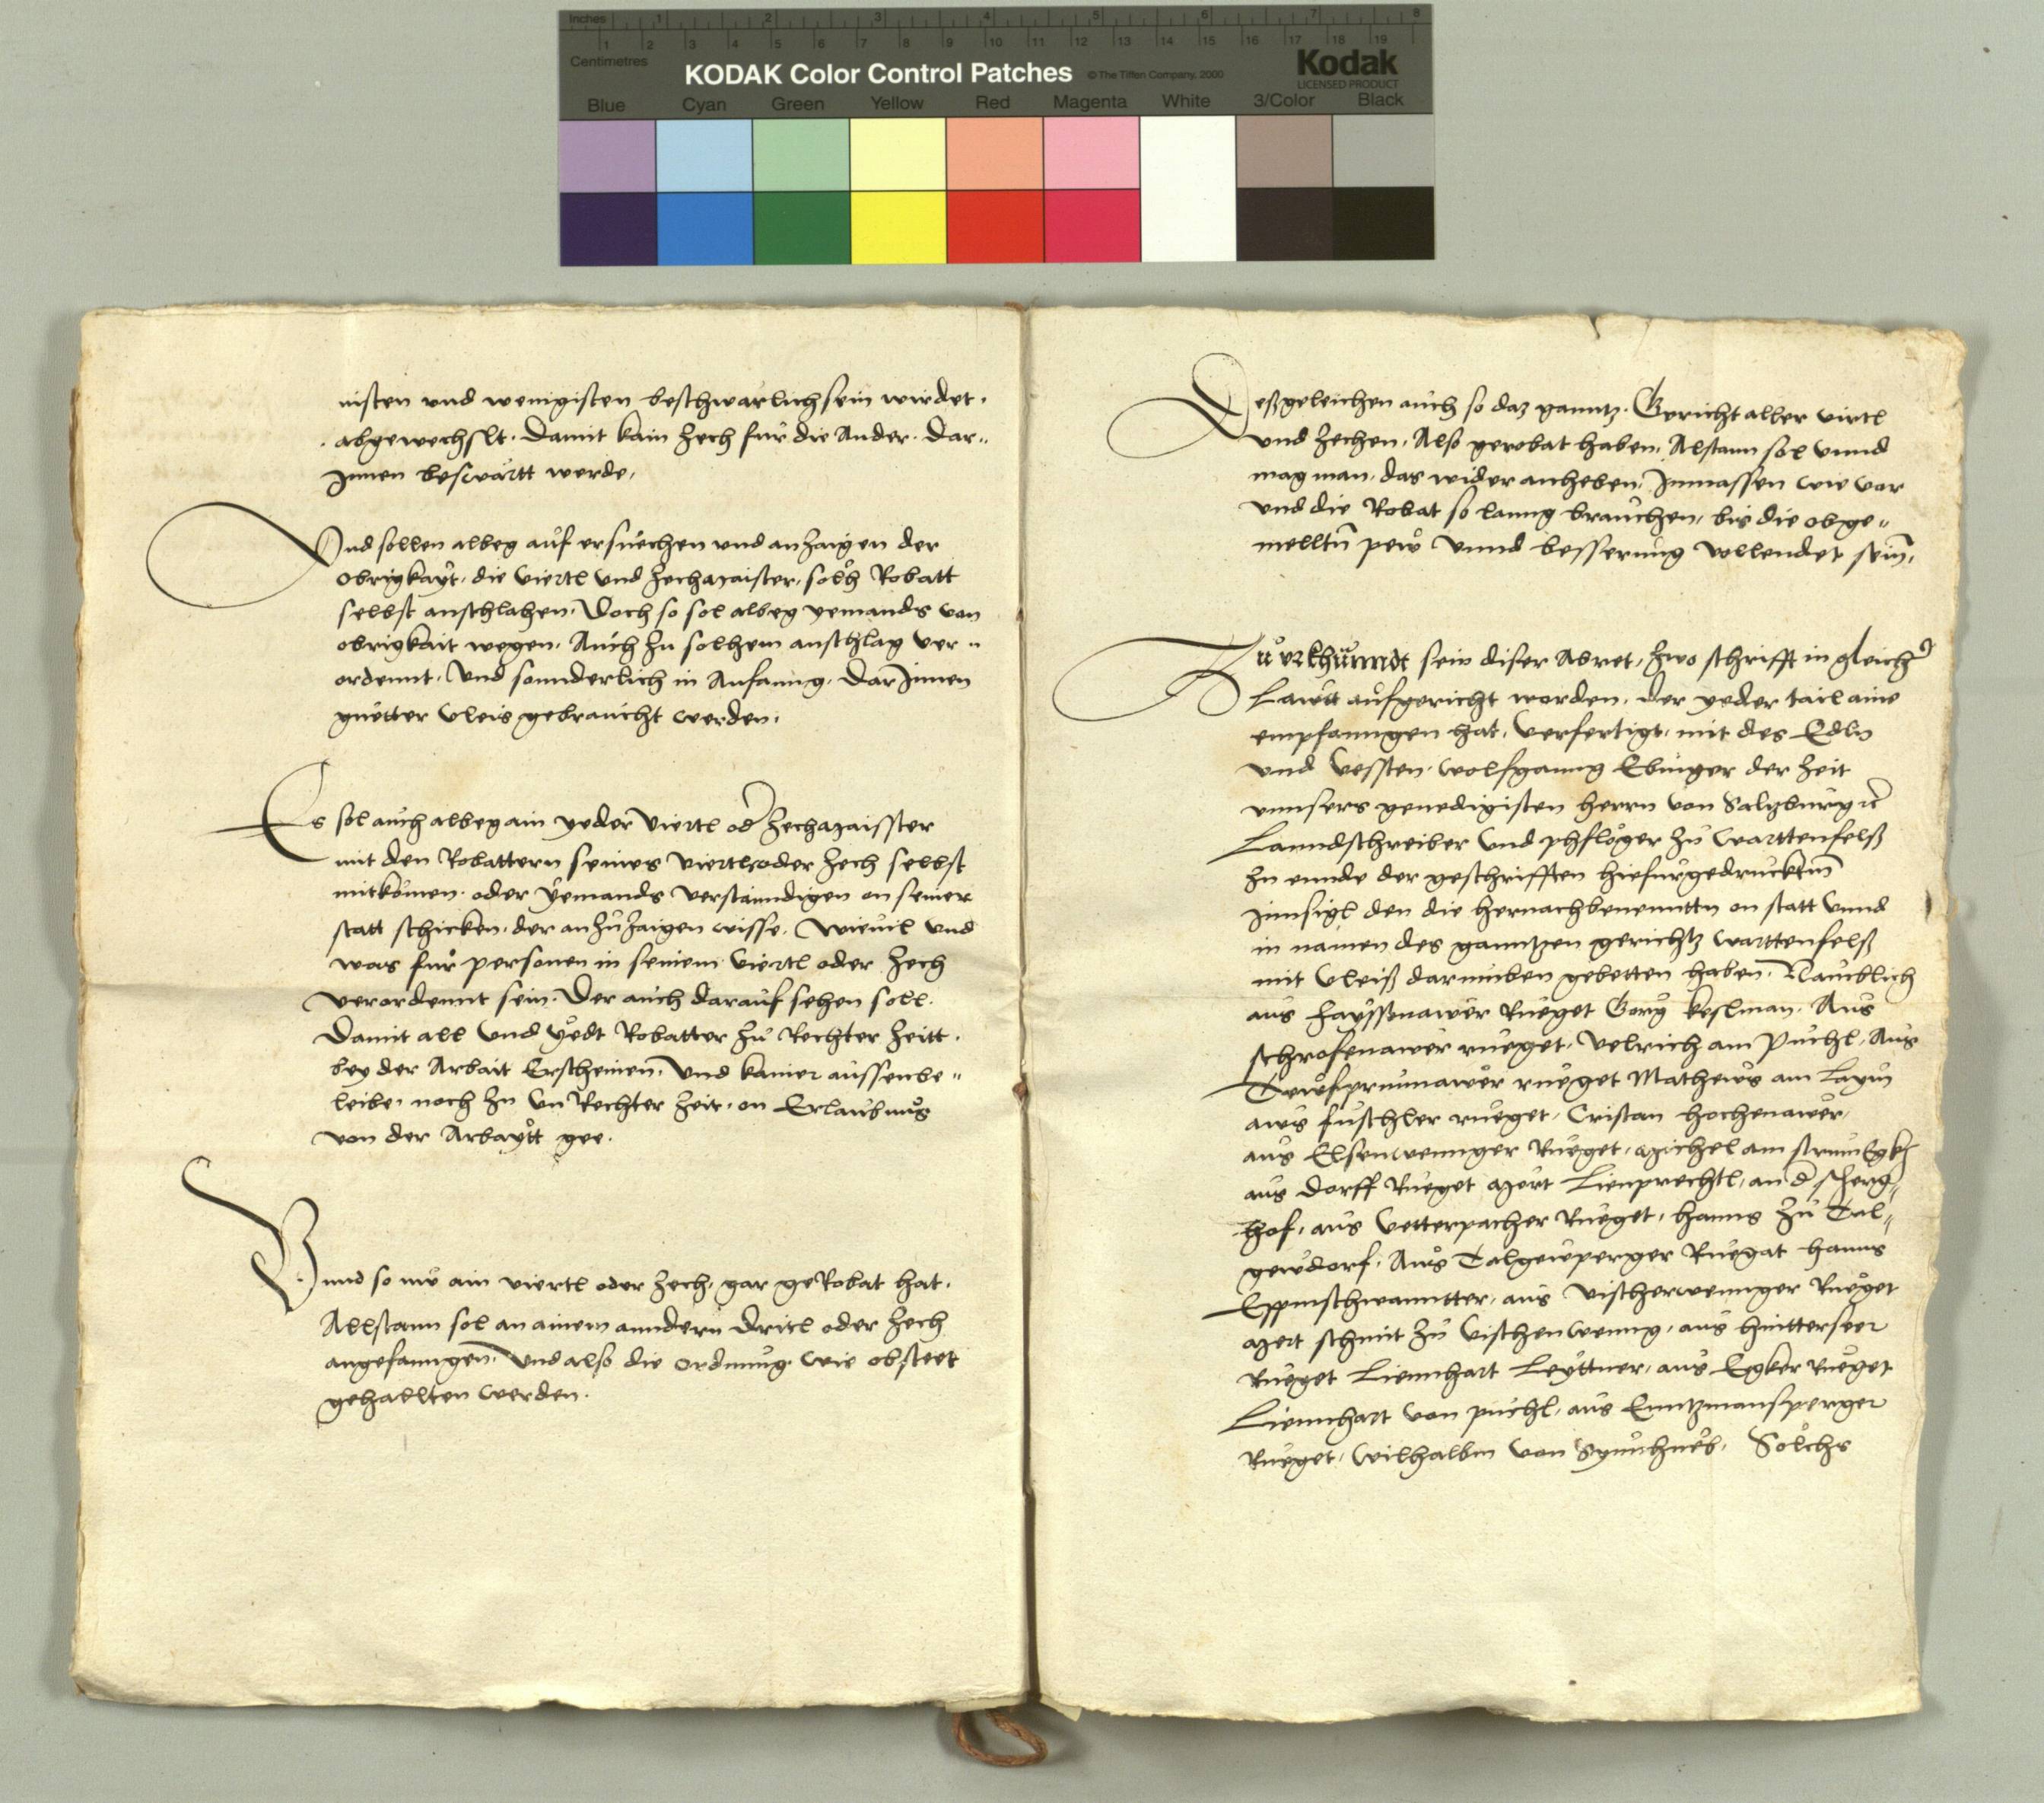 Inches 1 2 3 4 5 6 7 8
1 2 3 4 5 6 7 8 9 10 11 12 13 14 15 16 17 18 19
Centimetres
KODAK Color Control Patches © The Tiffen Company, 2000 Kodak
LICENSED PRODUCT
Blue Cyan Green Yellow Red Magenta White 3/Color Black
nisten und wenigisten beschwarlich sein wirdet.
abgewechslt. Damit kain Zech fur die Ander. Dar-
Innen beswärtt werde,
Und sollen albeg auf ersuechen und anzaigen der
obrigkayt, die viertl und Zechmaister, solh Robatt
selbst anschlahen, Doch so sol albeg yemands von
obrigkait wegen, Auch zu solhem anschlag ver-
ordennt, Und sonnderlich in Anfanng, DarInnen
guetter vleis gebraucht werden.
Es sol auch albeg ain yeder viertl od Zechmaisster
mit den Robattern seines viertl oder Zech selbst
mitkomen. oder yemands verstanndigen an seiner
statt schicken, der anzuzaigen wisse, wievil und
was fur personen in seinem viertl oder Zech
verordennt sein. Der auch darauf sehen soll.
Damit all und yedt Robatter zu Rechter Zeitt.
bey der Arbait Erscheinen, Und kainer aussenbe-
leibe, noch zu un Rechter Zeit, on Erlaubnus
von der Arbaytt gee.
Unnd so nu ain viertl oder Zech, gar geRobat hat.
Allsdann sol an ainem anndern Viertl oder Zech
angefanngen, Und also die ordnung wie obsteet
gehallten werden.
Desgeleichen auch so daz ganntz. Gericht aller virtl
und Zechen, Also gerobat haben, Alsdann sol unnd
mag man, das wider anheben, Inmassen wie vor
und die Robat so lanng brauchen, bis die obge-
melltn pew unnd besserung vollendet sein,
Zu urkhundt sein diser Abret, zwo schrifft in gleicher
Lawtt aufgericht worden, der yeder tail aine
empfanngen hat, Verfertigt, mit des Edln
und vessten, wolfganng Ebinger der Zeit
unnsers genedigisten herrn von Saltzburg rc
Lanndschreiber und phfloger zu warttenfelß
zu ennde der geschrifften hiefurgedrucktm
Innsigl den die hernachbenenntn an statt unnd
in namen des ganntzen gerichtz warttenfelß
mit vleiß darumben gebetten haben. Namblich
aus Rueget Görg keslman. Aus
schrofenawer rueget, Velrich am Puchl, Aus
rueget Mathews am
aws fuschler rueget, Cristan hochenawer,
aus Elsenwennger Rueget, Michel am
aus dorff Rueget Mert Lienprechtl, an d
hof, aus vetterpacher Rueget, hanns zu Tal-
gewdorf, Aus Talgewperger Ruegat hanns
Eppnschwanntter, aus vischerwennger Rueget
Mert schmit zu vischenwenng, aus hintterseer
Rueget Liennhart Leyttner, aus Egker rueget
Liennhart von puchl, aus Enntzmansperger
Rueget, Wilhalbm von Solchs